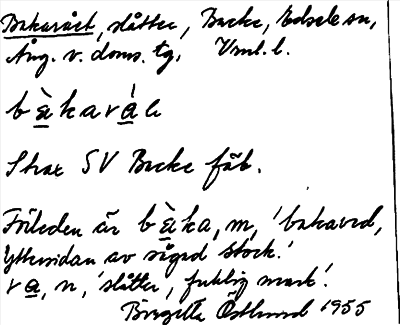 Bakarået, slåtter, Backe, Edsele sn,
Ång. v. doms. tg, Vml. l.
bàkavál
Strax SV Backe fäb.
Förleden är bàka, m, 'bakaved,
Yttersidan av sågad stock.'
va, n, 'slåtter, fuktig mark'.
Birgitta Östlund 1955